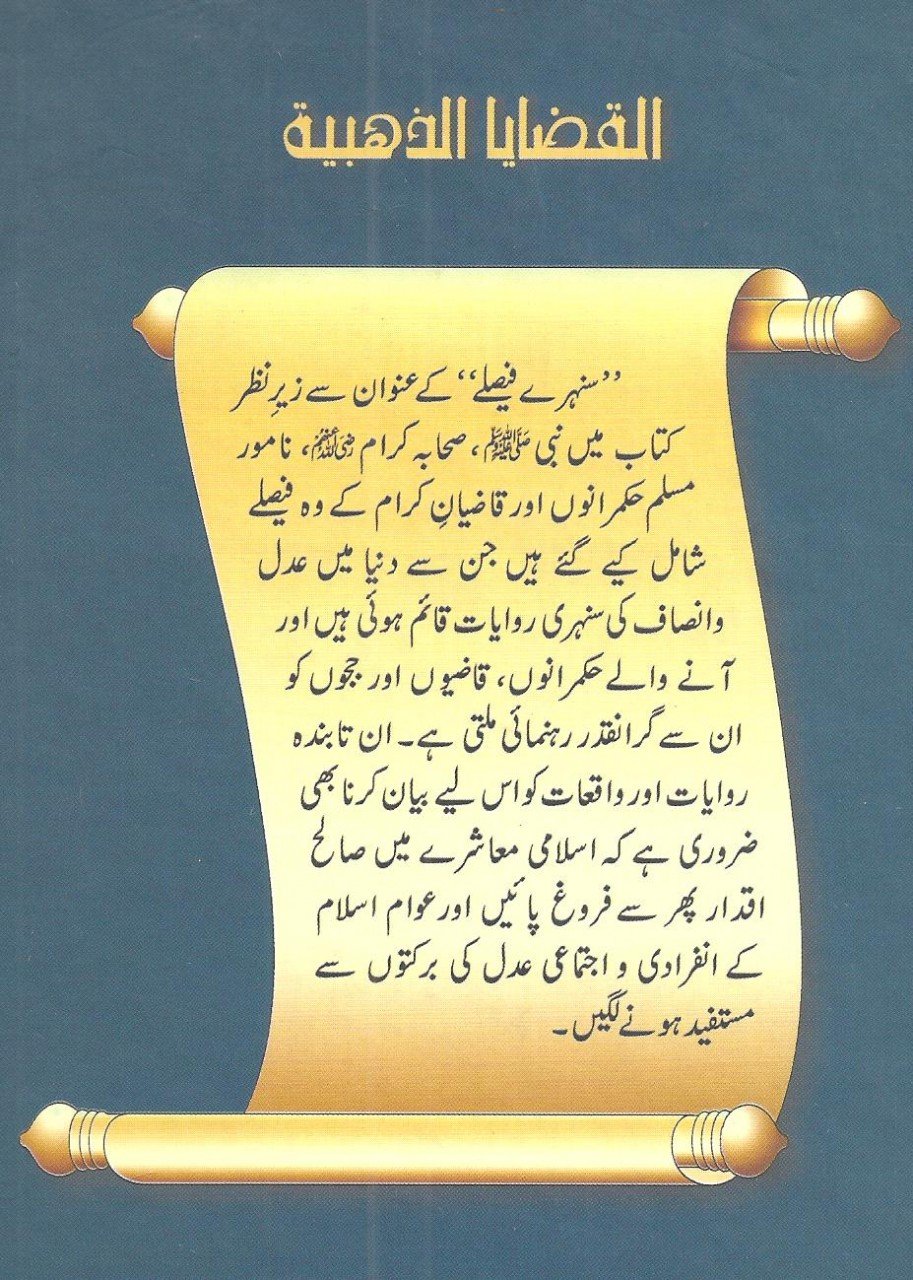 القضايا الذهبية
’’سنہرے فیصلے‘‘ کے عنوان سے زیرِ نظر
کتاب میں نبی ﷺ، صحابہ کرام رضی اللہ عنہم، نامور
مسلم حکمرانوں اور قاضیانِ کرام کے وہ فیصلے
شامل کیے گئے ہیں جن سے دنیا میں عدل
وانصاف کی سنہری روایات قائم ہوئی ہیں اور
آنے والے حکمرانوں، قاضیوں اور ججوں کو
ان سے گرانقدر رہنمائی ملتی ہے۔ ان تابندہ
روایات اور واقعات کو اس لیے بیان کرنا بھی
ضروری ہے کہ اسلامی معاشرے میں صالح
اقدار پھر سے فروغ پائیں اور عوام اسلام
کے انفرادی و اجتماعی عدل کی برکتوں سے
مستفید ہونے لگیں۔